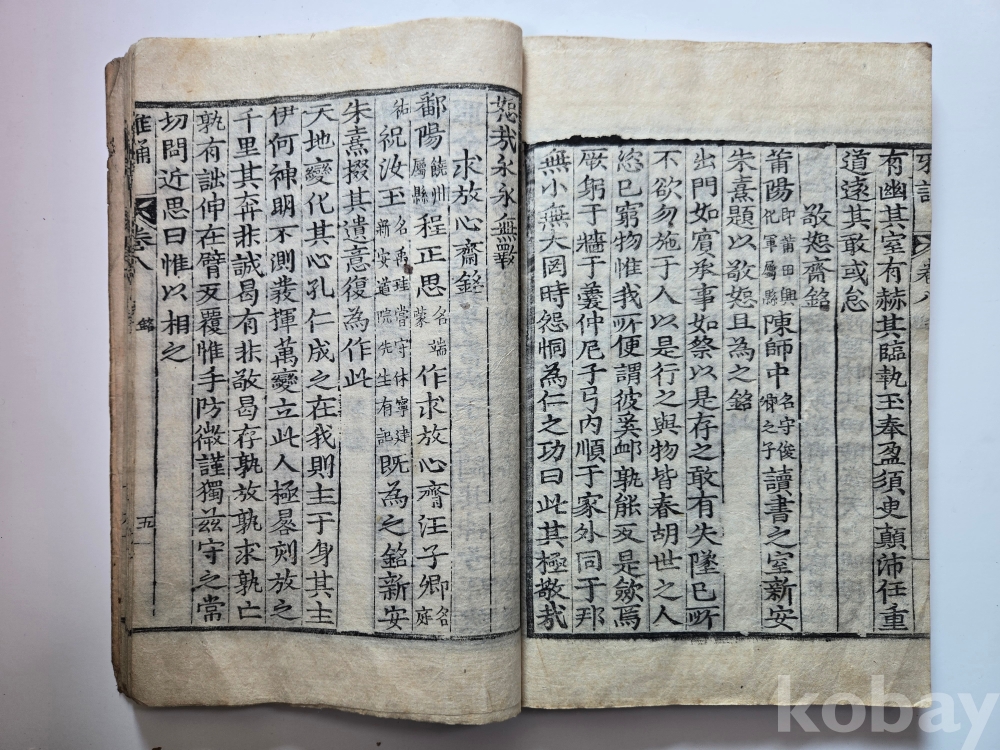 有幽其室有赫其臨執玉奉盈須臾顛沛任重
道遠其敢或怠
敬恕齋銘
莆陽即莆田興化軍屬縣陳師中名守俊卿之子讀書之室新安
朱熹題以敬恕且為之銘
出門如賓承事如祭以是存之敢有失墜己所
不欲勿施于人以是行之與物皆春胡世之人
恣己窮物惟我所便謂彼奚卹孰能反是歛焉
厥躬于牆于羹仲尼子弓内順于家外同于邦
無小無大罔時怨恫為仁之功曰此其極敬哉
恕哉永永無斁
求放心齋銘
鄱陽饒州屬縣程正思名端蒙作求放心齊汪子卿名
祝汝玉名禹珪嘗守休寧建新安道院先生有記既為之銘新安
朱熹掇其遺意復為作此
天地變化其心孔仁成之在我則主于身其主
伊何神明不測發揮萬變立此人極晷刻放之
千里其奔非誠曷有非敬曷存孰放孰求孰亡
孰有詘伸在臂反覆惟手防微謹獨茲守之常
切問近思曰惟以相之
雅誦 卷八 銘 五
kobay